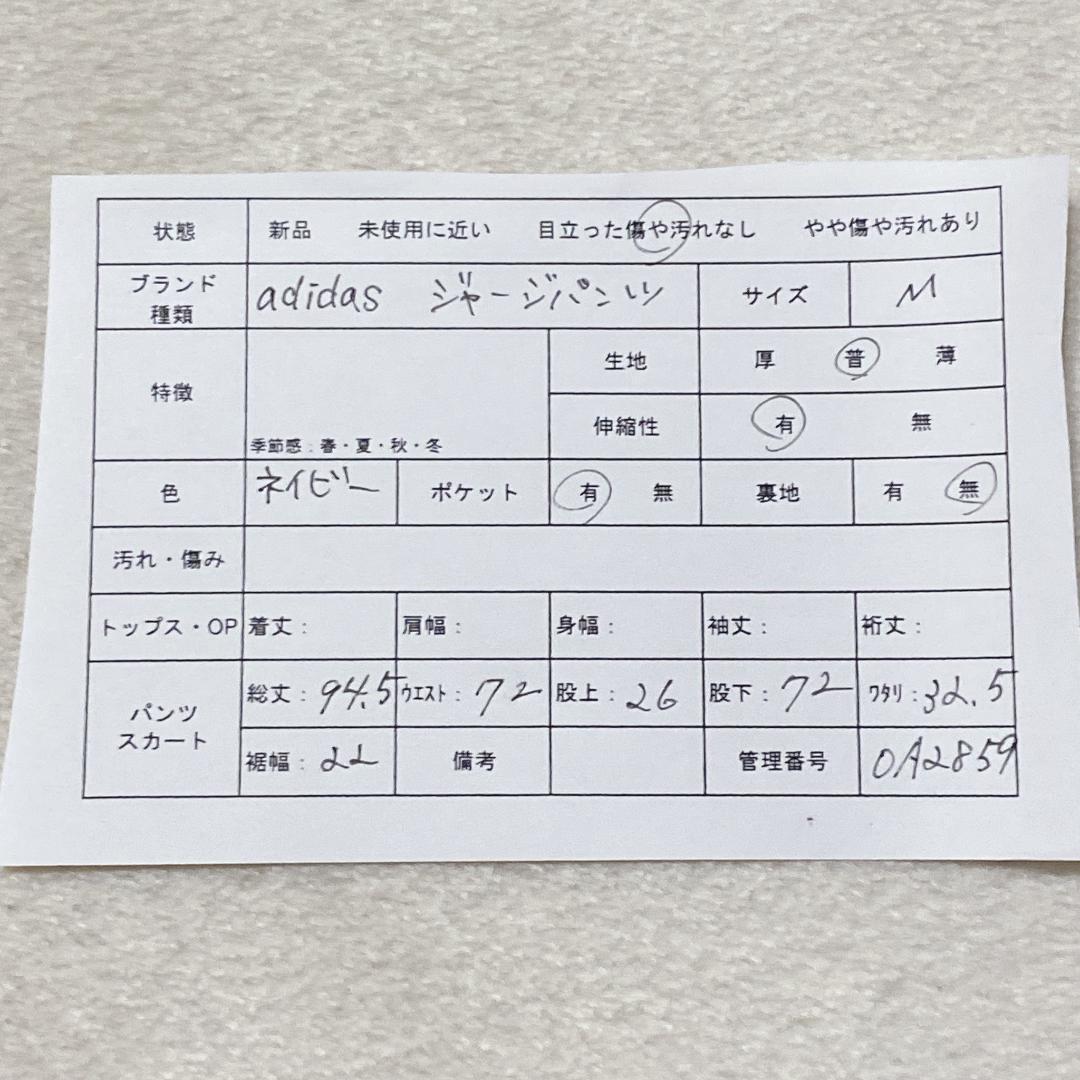 状態 新品 未使用に近い 目立った傷や汚れなし やや傷や汚れあり
ブランド 種類 adidas ジャージパンツ サイズ M
特徴 季節感：春・夏・秋・冬
生地 厚 普 薄
伸縮性 有 無
色 ネイビー ポケット 有 無 裏地 有 無
汚れ・傷み
トップス・OP 着丈： 肩幅： 身幅： 袖丈： 裄丈：
パンツ スカート 総丈：94.5 ウエスト：72 股上：26 股下：72 ワタリ：32.5
裾幅：22 備考 管理番号 0A2859